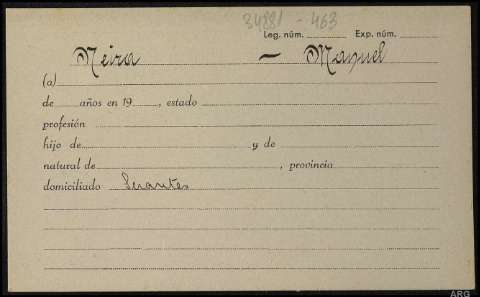 34881 - 463
Leg. núm. Exp. núm.
Neira — Manuel
(a)
de años en 19 , estado
profesión
hijo de y de
natural de , provincia
domiciliado Serantes
ARG